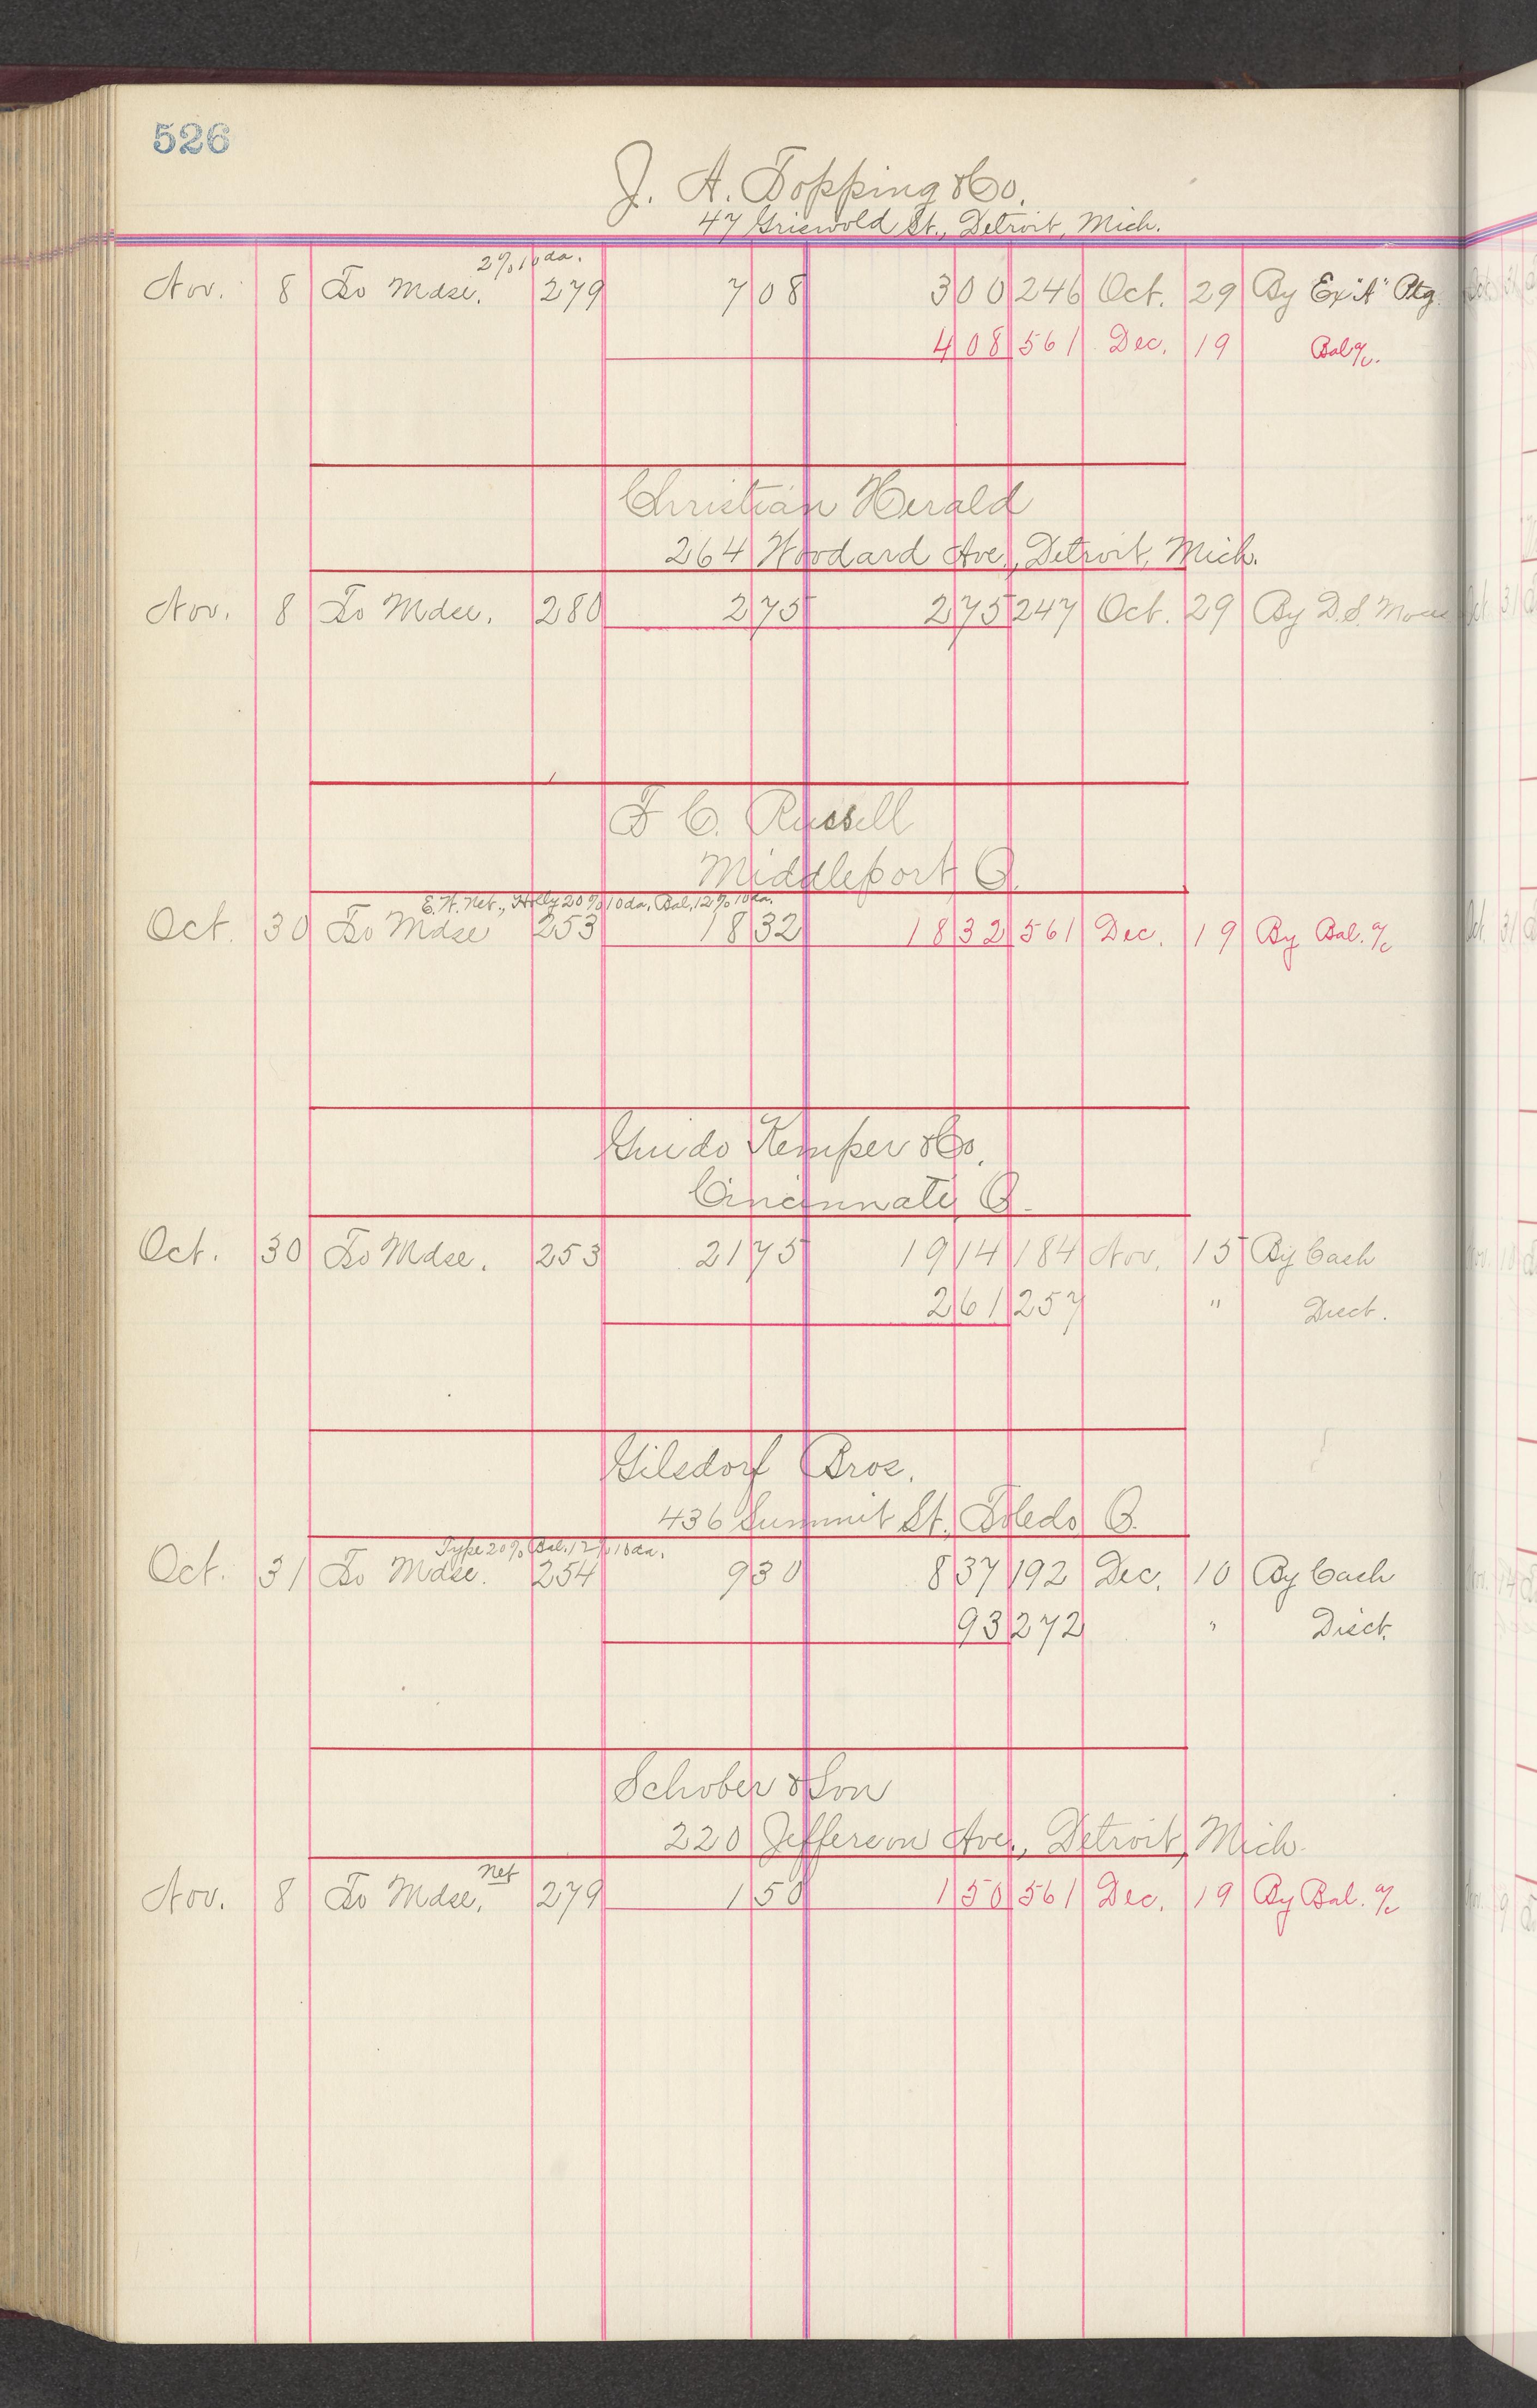 526
J. A. Topping & Co.
47 Griswold St., Detroit, Mich.
2% 10 da.
Nov. 8 To Mdse. 279 7 08 3 00 246 Oct. 29 By Ex "A" Ptg
4 08 561 Dec. 19 Bal a/c.
Christian Herald
264 Woodard Ave., Detroit, Mich.
Nov. 8 To Mdse. 280 2 75 2 75 247 Oct. 29 By D.S.
F C. Russell
Middleport O.
E.W. Net., Holly 20% 10 da, Bal, 12% 10 da.
Oct. 30 To Mdse 253 18 32 18 32 561 Dec. 19 By Bal. a/c
Guido Kemper & Co.
Cincinnati, O.
Oct. 30 To Mdse. 253 21 75 19 14 184 Nov. 15 By Cash
2 61 257 " Disct.
Gilsdorf Bros.
436 Summit St., Toledo O.
Type 20% Bal. 12% 10 da.
Oct. 31 To Mdse. 254 9 30 8 37 192 Dec. 10 By Cash
93 272 " Disct.
Schober & Son
220 Jefferson Ave., Detroit, Mich.
Net
Nov. 8 To Mdse. 279 1 50 1 50 561 Dec. 19 By Bal. a/c